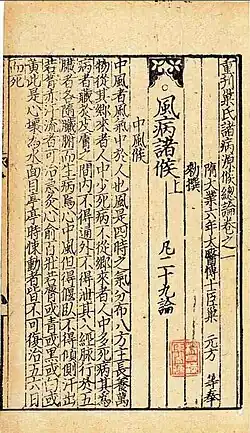 重刊巢氏諸病源候總論卷之一
隋大業六年太醫博士臣巢元方等奉
勑撰
風病諸候上 凡二十九論
中風候
中風者風氣中於人也風是四時之氣分布八方主長養萬
物從其鄉來者人中少死病不從鄉來者人中多死病其為
病者藏於皮膚之間內不得通外不得泄其入經脈行於五
臟者各隨臟腑而生病焉心中風但得偃臥不得傾側汗出
若唇赤汗流者可治急灸心俞百壯若唇或青或黑或白或
黃此是心壞為水面目亭亭時悚動者皆不可復治五六日
而死